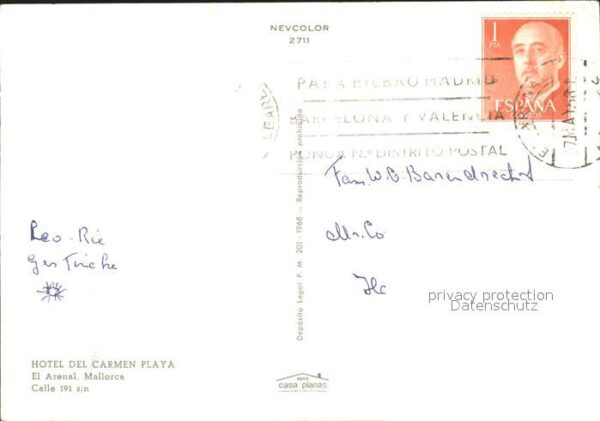 NEVCOLOR
2711
1
PTA
ESPAÑA
PARA BILBAO MADRID
BARCELONA Y VALENCIA
PONGA N.º DISTRITO POSTAL
Fam. W. G. Barendrecht
privacy protection
Leo - Rie
Ger Tinche
Depósito Legal P. M. 201 - 1968 - Reproducción prohibida
HOTEL DEL CARMEN PLAYA
El Arenal. Mallorca
Calle 191 s/n
casa planas